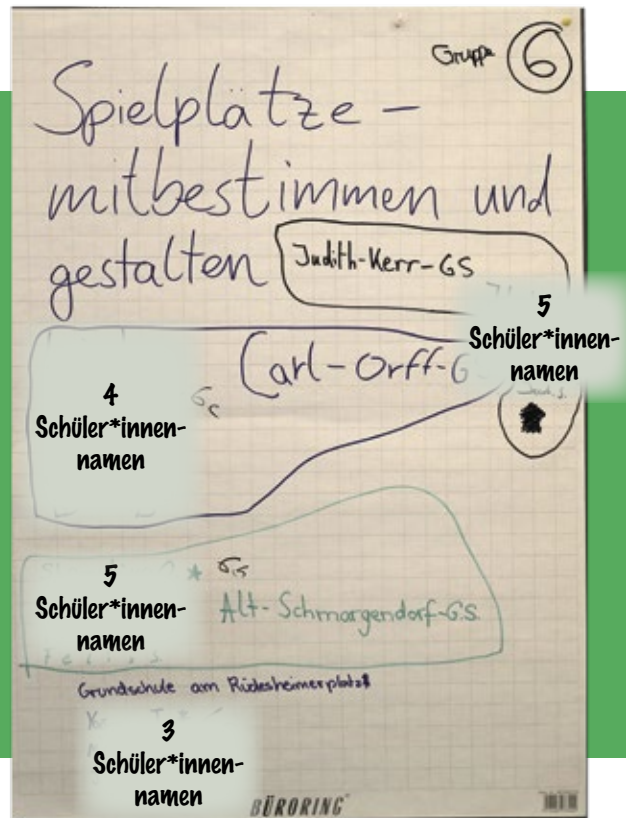 Gruppe 6
Spielplätze –
mitbestimmen und
gestalten
Judith-Kerr-GS
5
Schüler*innen-
namen
Carl-Orff-G
4
Schüler*innen-
namen
5
Schüler*innen-
namen
Alt-Schmargendorf-G.S.
Grundschule am Rüdesheimerplatz
3
Schüler*innen-
namen
BÜRORING